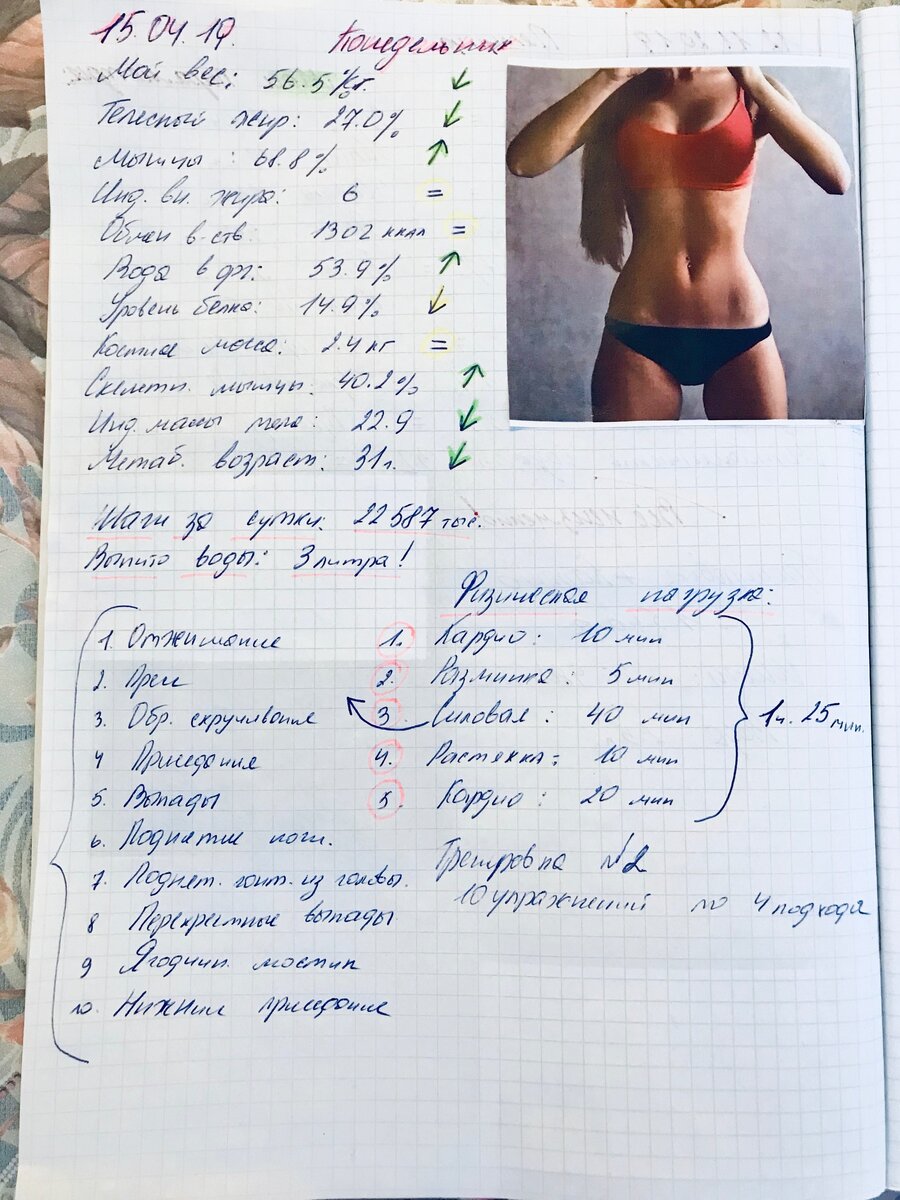 15.04.19. Понедельник
Мой вес: 56.5 кг. ↓
Телесный жир: 27.0% ↓
Мышцы : 68.8% ↑
Инд. вн. жира: 6 =
Обмен в-ств: 1302 ккал =
Вода в орг: 53.9% ↑
Уровень белка: 14.9% ↓
Костная масса: 2.4 кг =
Скелетн. мышцы: 40.2% ↑
Инд. массы тела: 22.9 ↓
Метаб. возраст: 31 г. ↓
Шаги за сутки: 22 587 тыс.
Выпито воды: 3 литра!
Физическая нагрузка:
1. Кардио: 10 мин
2. Разминка: 5 мин
3. Силовая: 40 мин
4. Растяжка: 10 мин
5. Кардио: 20 мин
1ч. 25 мин.
1. Отжимание
2. Пресс
3. Обр. скручивание
4 Приседания
5. Выпады
6. Поднятие ног.
7. Поднят. гант. из головы.
8 Перекрестные выпады
9 Ягодичн. мостик
10. Нижние приседание
Тренировка №2
10 упражнений по 4 подхода